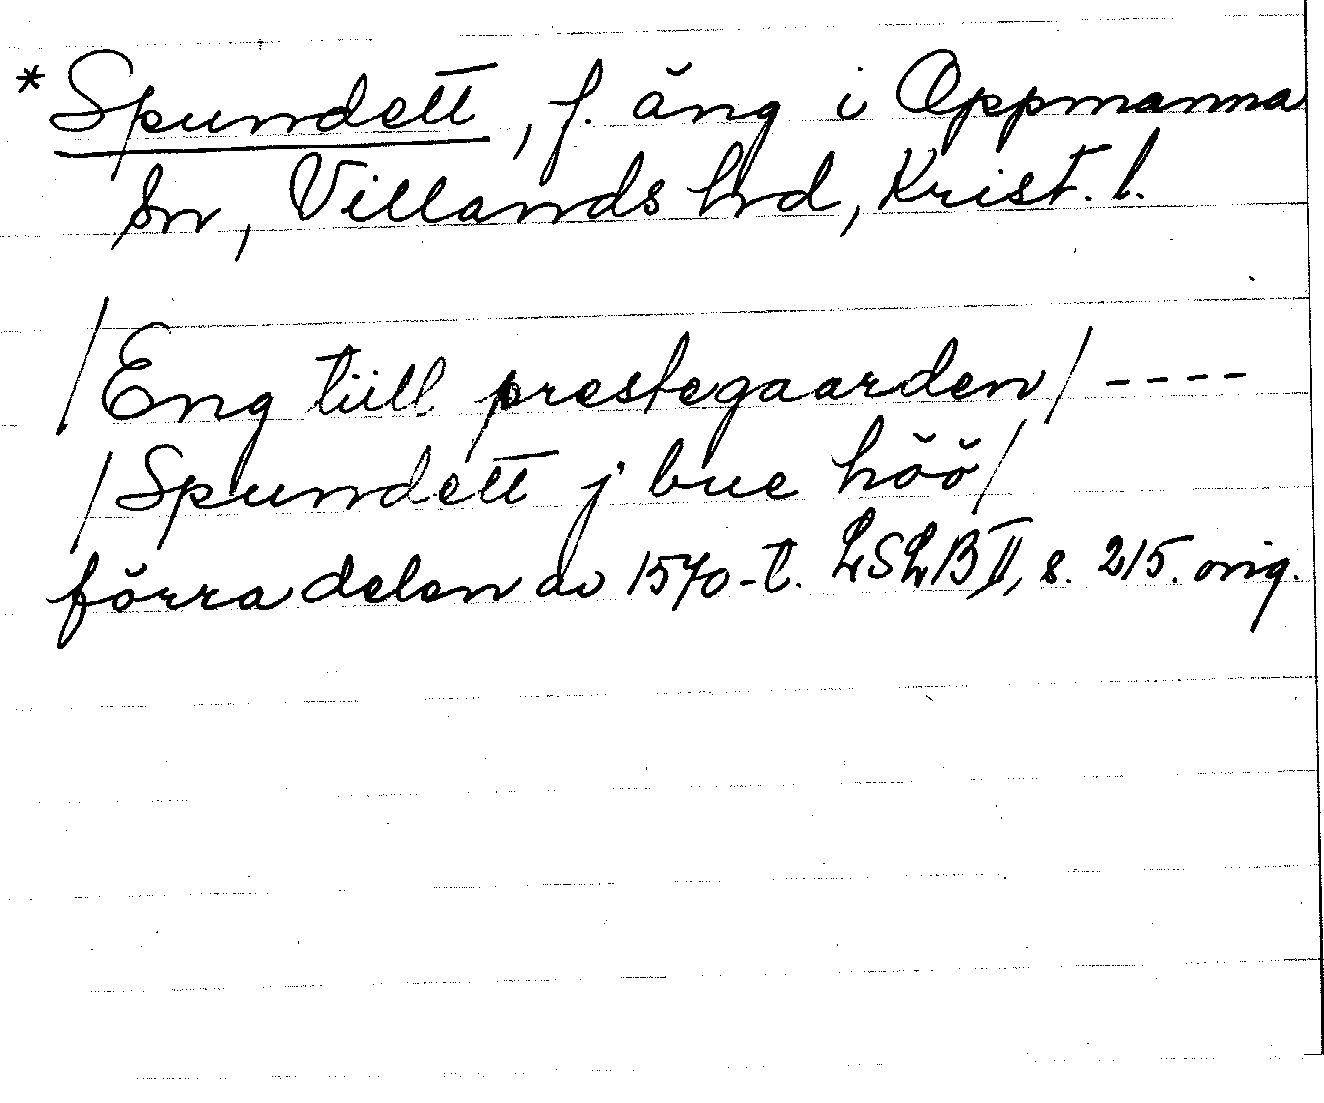 *Spundett, f. äng i Oppmanna
sn, Villands hrd, Krist. l.
/Eng tiill prestegaarden/ ----
/Spundett j bue höö/
förra delen av 1570-t. LSLB II, s. 215. orig.